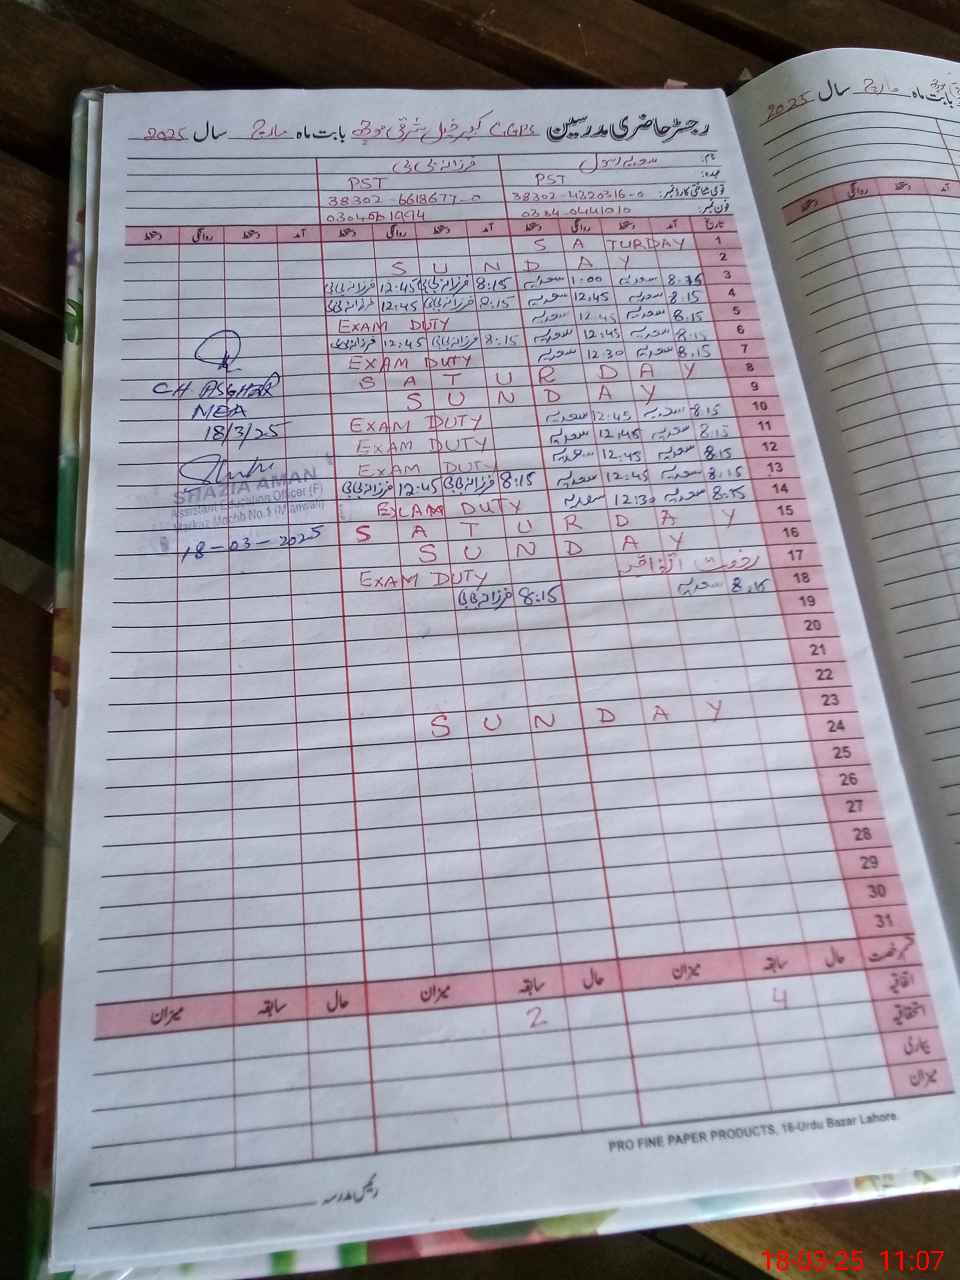 رجسٹر حاضری مدرسین C.G.P.S شرقی موچھ بابت ماہ مارچ سال 2025
نام: سعدیہ رسول فرزانہ بی بی
عہدہ: PST PST
قومی شناختی کارڈ نمبر: 38302-4320316-0 38302-6618677-0
فون نمبر:
تاریخ آمد دستخط روانگی دستخط آمد دستخط روانگی دستخط آمد دستخط روانگی دستخط
1 SATURDAY
2 SUNDAY
3 8:15 سعدیہ 1:00 سعدیہ 8:15 فرزانہ بی بی 12:45 فرزانہ بی بی
4 8:15 سعدیہ 12:45 سعدیہ 8:15 فرزانہ بی بی 12:45 فرزانہ بی بی
5 8:15 سعدیہ 12:45 سعدیہ EXAM DUTY
6 8:15 سعدیہ 12:45 سعدیہ 8:15 فرزانہ بی بی 12:45 فرزانہ بی بی
7 8:15 سعدیہ 12:30 سعدیہ EXAM DUTY
8 SATURDAY
9 SUNDAY
10 8:15 سعدیہ 12:45 سعدیہ EXAM DUTY
11 8:15 سعدیہ 12:45 سعدیہ EXAM DUTY
12 8:15 سعدیہ 12:45 سعدیہ EXAM DUTY
13 8:15 سعدیہ 12:45 سعدیہ 8:15 فرزانہ بی بی 12:45 فرزانہ بی بی
14 8:15 سعدیہ 12:30 سعدیہ EXAM DUTY
15 SATURDAY
16 SUNDAY
17 رخصت اتفاقیہ EXAM DUTY
18 8:15 سعدیہ 8:15 فرزانہ بی بی
19
20
21
22
23 SUNDAY
24
25
26
27
28
29
30
31
CH ASGHAR
MEA
18/3/25
SHAZIA AMAN
Assistant Education Officer (F)
Markaz Mochh No.1 (Mianwali)
18-03-2025
قسم رخصت حال سابقہ میزان حال سابقہ میزان حال سابقہ میزان
اتفاقیہ 4 2
استحقاقیہ
بیماری
میزان
PRO FINE PAPER PRODUCTS, 16-Urdu Bazar Lahore
رئیس مدرسہ
2025 سال مارچ بابت ماہ
آمد دستخط روانگی دستخط
18-03-25 11:07